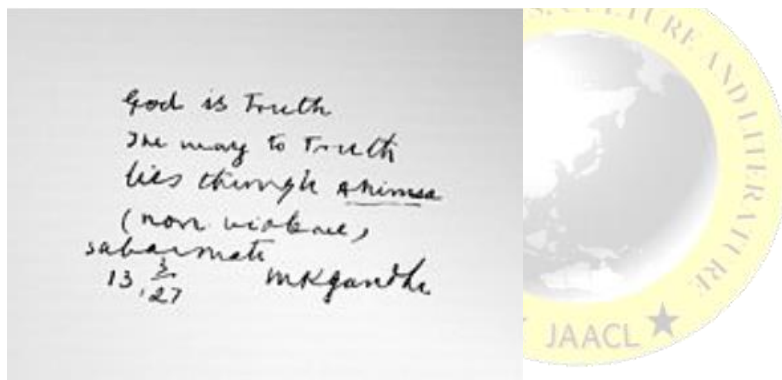 God is Truth
The way to Truth
lies through ahimsa
(non violence)
Sabarmati
13.3.27
MKGandhi
CULTURE AND LITERATURE
JAACL